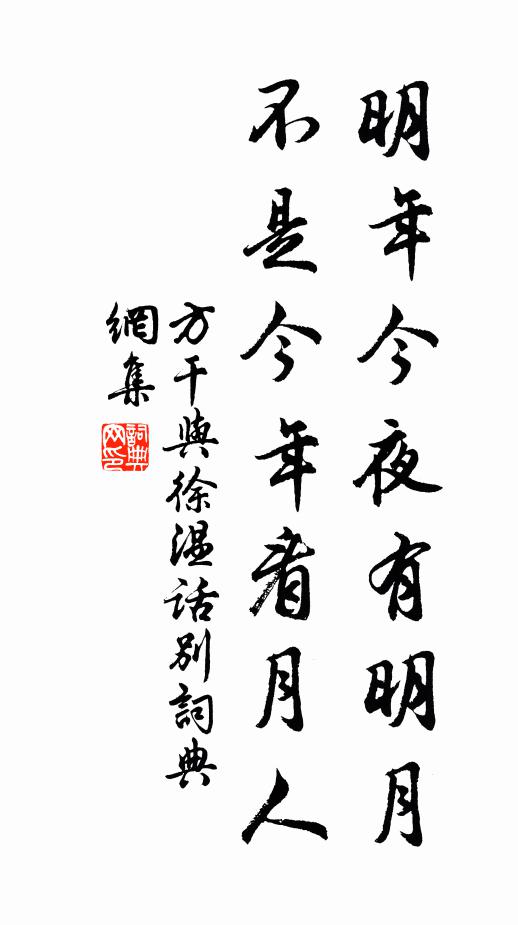 明年今夜有明月
不是今年看月人
方干與徐温話別詞典
網集
詞典
网印